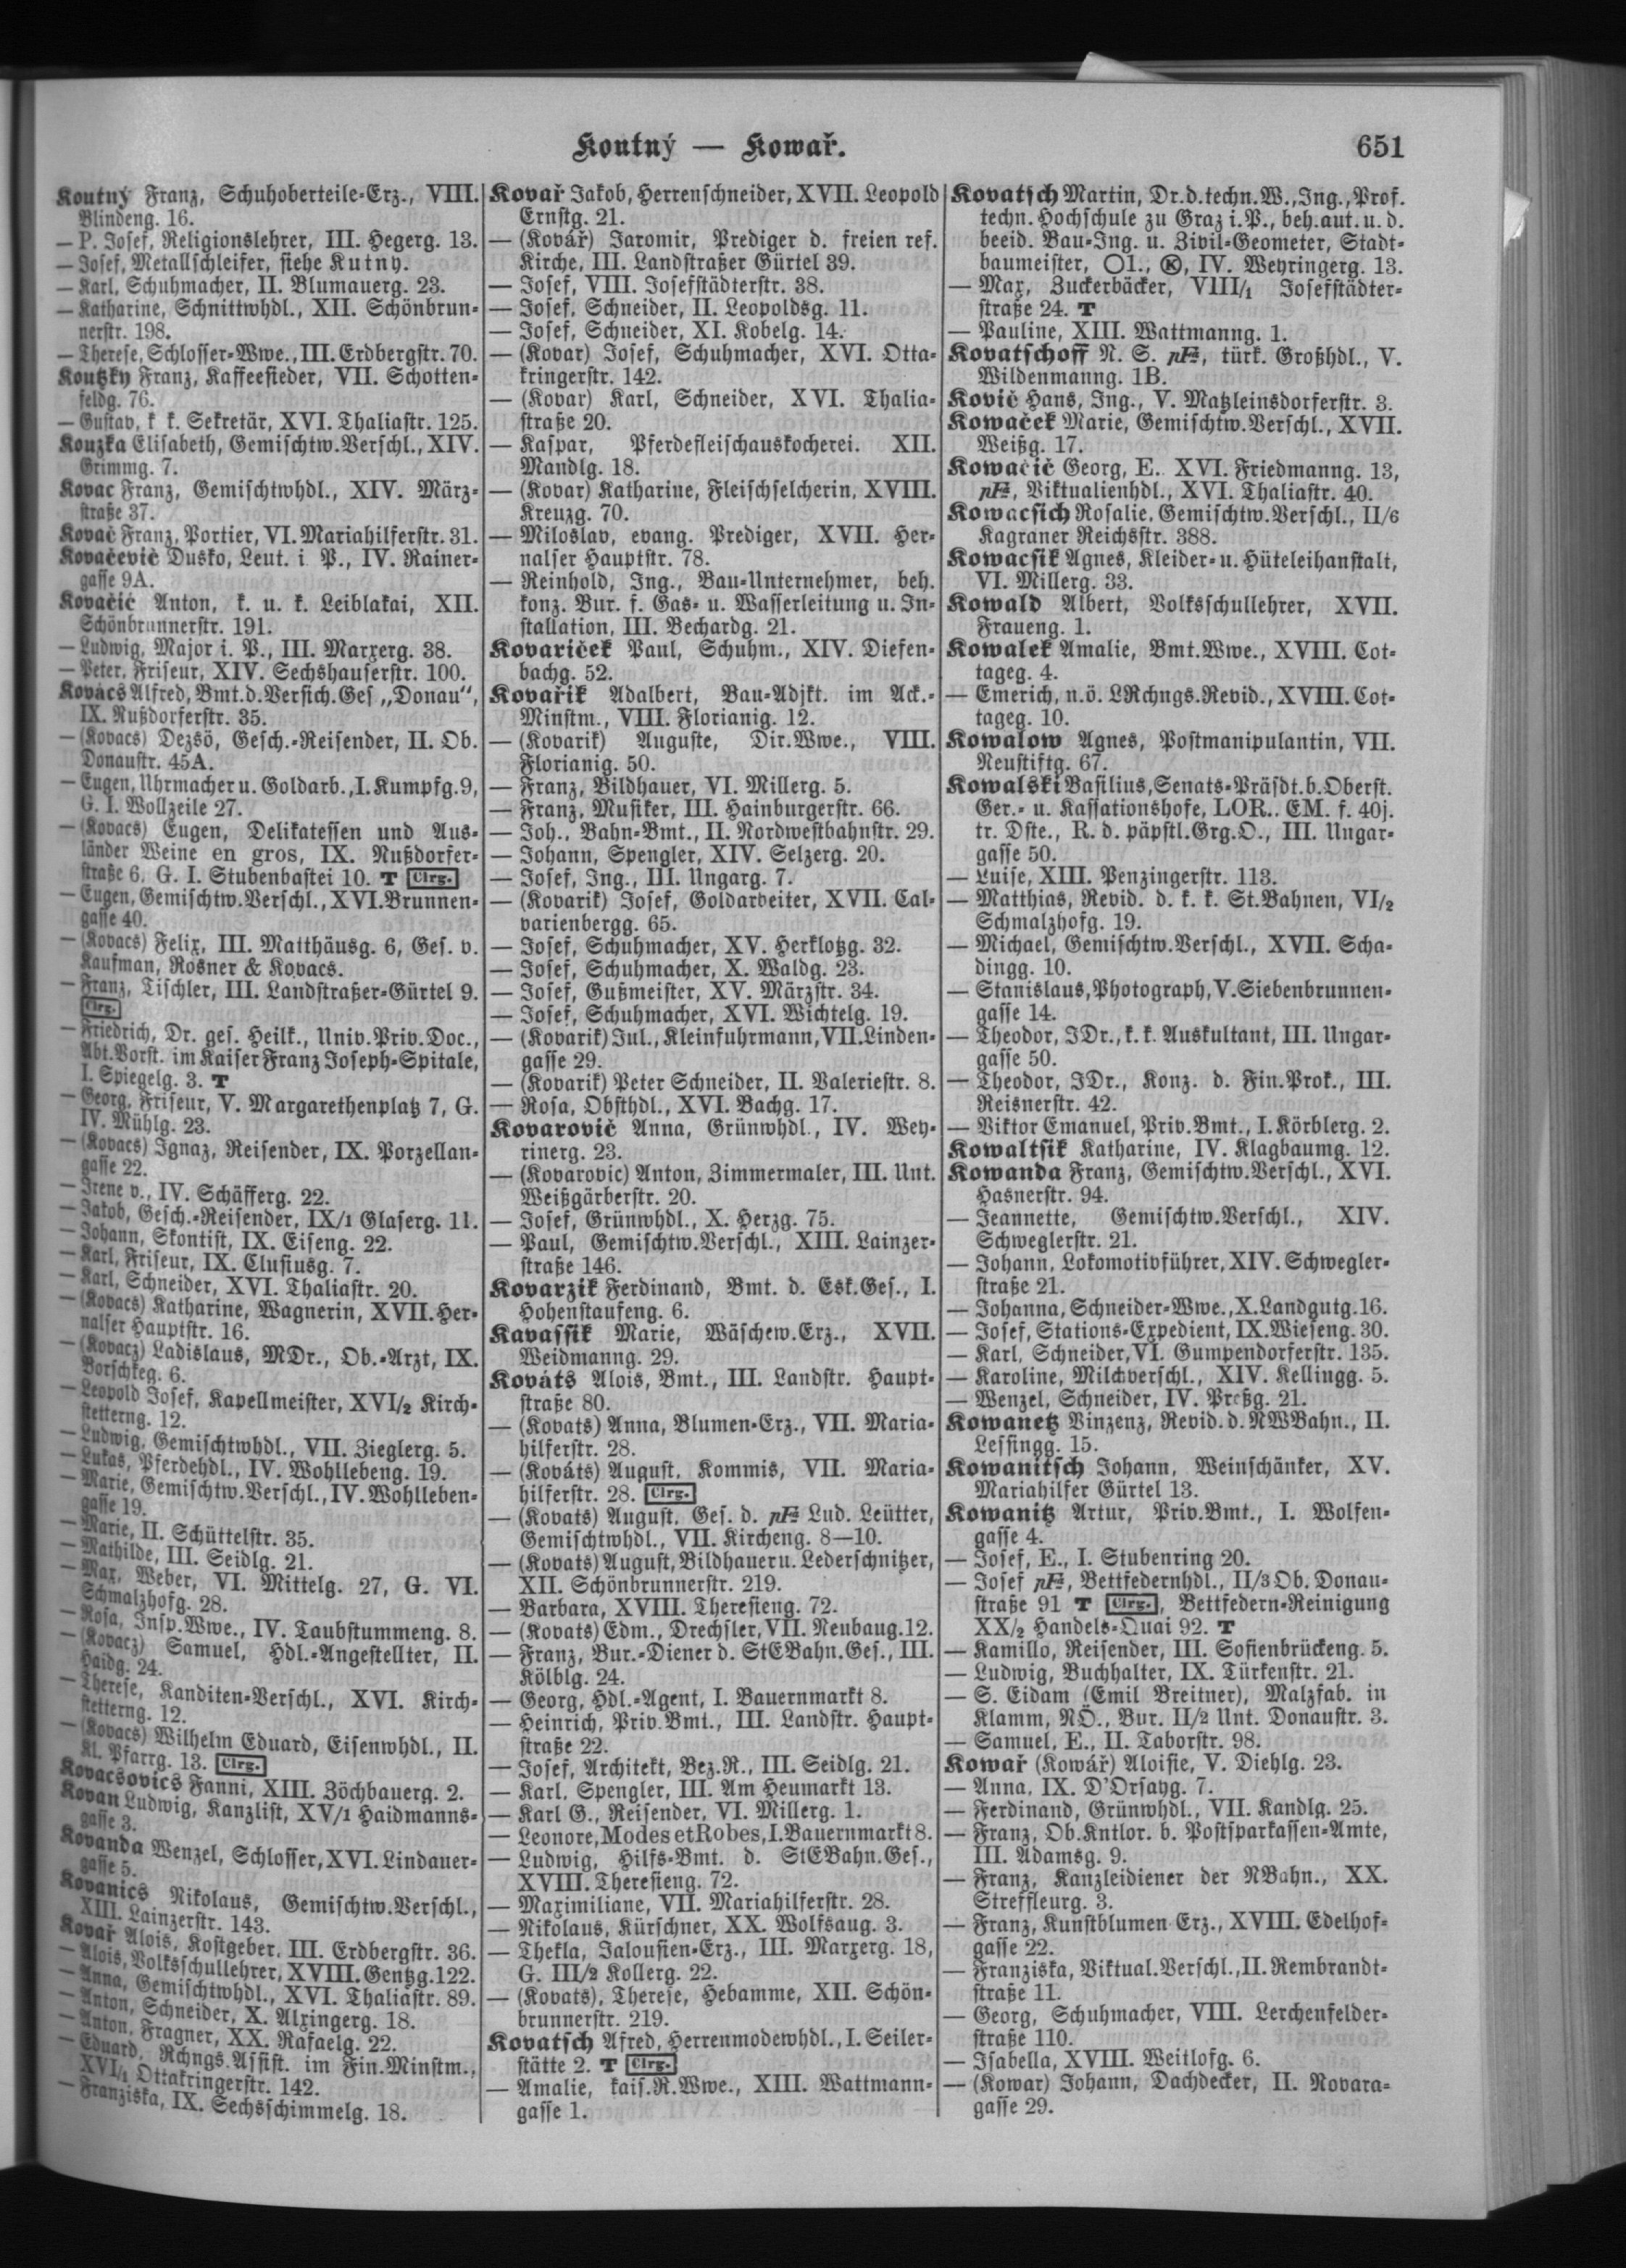 Koutný — Kowař.
651
Koutný Franz, Schuhoberteile-Erz., VIII.
Blindeng. 16.
— P. Josef, Religionslehrer, III. Hegerg. 13.
— Josef, Metallschleifer, siehe Kutny.
— Karl, Schuhmacher, II. Blumauerg. 23.
— Katharine, Schnittwhdl., XII. Schönbrun-
nerstr. 198.
— Therese, Schlosser-Wwe., III. Erdbergstr. 70.
Koutzky Franz, Kaffeesieder, VII. Schotten-
feldg. 76.
— Gustav, k k. Sekretär, XVI. Thaliastr. 125.
Kouzka Elisabeth, Gemischtw.Verschl., XIV.
Grimmg. 7.
Kovac Franz, Gemischtwhdl., XIV. März-
straße 37.
Kovač Franz, Portier, VI. Mariahilferstr. 31.
Kovačević Dusko, Leut. i P., IV. Rainer-
gasse 9A.
Kovačić Anton, k. u. k. Leiblakai, XII.
Schönbrunnerstr. 191.
— Ludwig, Major i. P., III. Marxerg. 38.
— Peter, Friseur, XIV. Sechshauserstr. 100.
Kovács Alfred, Bmt.d.Versich.Ges „Donau“,
IX. Nußdorferstr. 35.
— (Kovacs) Dezsö, Gesch.-Reisender, II. Ob.
Donaustr. 45A.
— Eugen, Uhrmacher u. Goldarb., I. Kumpfg. 9,
G. I. Wollzeile 27.
— (Kovacs) Eugen, Delikatessen und Aus-
länder Weine en gros, IX. Nußdorfer-
straße 6, G. I. Stubenbastei 10. T Clrg.
— Eugen, Gemischtw.Verschl., XVI. Brunnen-
gasse 40.
— (Kovacs) Felix, III. Matthäusg. 6, Ges. v.
Kaufman, Rosner & Kovacs.
— Franz, Tischler, III. Landstraßer-Gürtel 9.
Clrg.
— Friedrich, Dr. ges. Heilk., Univ.Priv.Doc.,
Abt.Vorst. im Kaiser Franz Joseph-Spitale,
I. Spiegelg. 3. T
— Georg, Friseur, V. Margarethenplatz 7, G.
IV. Mühlg. 23.
— (Kovacs) Ignaz, Reisender, IX. Porzellan-
gasse 22.
— Irene v., IV. Schäfferg. 22.
— Jakob, Gesch.-Reisender, IX/1 Glaserg. 11.
— Johann, Skontist, IX. Eiseng. 22.
— Karl, Friseur, IX. Clusiusg. 7.
— Karl, Schneider, XVI. Thaliastr. 20.
— (Kovacs) Katharine, Wagnerin, XVII. Her-
nalser Hauptstr. 16.
— (Kovacz) Ladislaus, MDr., Ob.-Arzt, IX.
Borschkeg. 6.
— Leopold Josef, Kapellmeister, XVI/2 Kirch-
stetterng. 12.
— Ludwig, Gemischtwhdl., VII. Zieglerg. 5.
— Lukas, Pferdehdl., IV. Wohllebeng. 19.
— Marie, Gemischtw.Verschl., IV. Wohlleben-
gasse 19.
— Marie, II. Schüttelstr. 35.
— Mathilde, III. Seidlg. 21.
— Max, Weber, VI. Mittelg. 27, G. VI.
Schmalzhofg. 28.
— Rosa, Insp.Wwe., IV. Taubstummeng. 8.
— (Kovacz) Samuel, Hdl.-Angestellter, II.
Haidg. 24.
— Therese, Kanditen-Verschl., XVI. Kirch-
stetterng. 12.
— (Kovacs) Wilhelm Eduard, Eisenwhdl., II.
Kl. Pfarrg. 13. Clrg.
Kovacsovics Fanni, XIII. Zöchbauerg. 2.
Kovan Ludwig, Kanzlist, XV/1 Haidmanns-
gasse 3.
Kovanda Wenzel, Schlosser, XVI. Lindauer-
gasse 5.
Kovanics Nikolaus, Gemischtw.Verschl.,
XIII. Lainzerstr. 143.
Kovař Alois, Kostgeber, III. Erdbergstr. 36.
— Alois, Volksschullehrer, XVIII. Gentzg. 122.
— Anna, Gemischtwhdl., XVI. Thaliastr. 89.
— Anton, Schneider, X. Alxingerg. 18.
— Anton, Fragner, XX. Rafaelg. 22.
— Eduard, Rchngs.Assist. im Fin.Minstm.,
XVI/1 Ottakringerstr. 142.
— Franziska, IX. Sechsschimmelg. 18.
Kovař Jakob, Herrenschneider, XVII. Leopold
Ernstg. 21.
— (Kovář) Jaromir, Prediger d. freien ref.
Kirche, III. Landstraßer Gürtel 39.
— Josef, VIII. Josefstädterstr. 38.
— Josef, Schneider, II. Leopoldsg. 11.
— Josef, Schneider, XI. Kobelg. 14.
— (Kovar) Josef, Schuhmacher, XVI. Otta-
kringerstr. 142.
— (Kovar) Karl, Schneider, XVI. Thalia-
straße 20.
— Kaspar, Pferdefleischauskocherei. XII.
Mandlg. 18.
— (Kovar) Katharine, Fleischselcherin, XVIII.
Kreuzg. 70.
— Miloslav, evang. Prediger, XVII. Her-
nalser Hauptstr. 78.
— Reinhold, Ing., Bau-Unternehmer, beh.
konz. Bur. f. Gas- u. Wasserleitung u. In-
stallation, III. Bechardg. 21.
Kovariček Paul, Schuhm., XIV. Diefen-
bachg. 52.
Kovařik Adalbert, Bau-Adjkt. im Ack.-
Minstm., VIII. Florianig. 12.
— (Kovarik) Auguste, Dir.Wwe., VIII.
Florianig. 50.
— Franz, Bildhauer, VI. Millerg. 5.
— Franz, Musiker, III. Hainburgerstr. 66.
— Joh., Bahn-Bmt., II. Nordwestbahnstr. 29.
— Johann, Spengler, XIV. Selzerg. 20.
— Josef, Ing., III. Ungarg. 7.
— (Kovarik) Josef, Goldarbeiter, XVII. Cal-
varienbergg. 65.
— Josef, Schuhmacher, XV. Herklotzg. 32.
— Josef, Schuhmacher, X. Waldg. 23.
— Josef, Gußmeister, XV. Märzstr. 34.
— Josef, Schuhmacher, XVI. Wichtelg. 19.
— (Kovarik) Jul., Kleinfuhrmann, VII. Linden-
gasse 29.
— (Kovarik) Peter Schneider, II. Valeriestr. 8.
— Rosa, Obsthdl., XVI. Bachg. 17.
Kovarović Anna, Grünwhdl., IV. Wey-
rinerg. 23.
— (Kovarovic) Anton, Zimmermaler, III. Unt.
Weißgärberstr. 20.
— Josef, Grünwhdl., X. Herzg. 75.
— Paul, Gemischtw.Verschl., XIII. Lainzer-
straße 146.
Kovarzik Ferdinand, Bmt. d. Esk.Ges., I.
Hohenstaufeng. 6.
Kavassik Marie, Wäschew.Erz., XVII.
Weidmanng. 29.
Kováts Alois, Bmt., III. Landstr. Haupt-
straße 80.
— (Kovats) Anna, Blumen-Erz., VII. Maria-
hilferstr. 28.
— (Kováts) August, Kommis, VII. Maria-
hilferstr. 28. Clrg.
— (Kovats) August, Ges. d. pFa Lud. Leütter,
Gemischtwhdl., VII. Kircheng. 8—10.
— (Kovats) August, Bildhauer u. Lederschnitzer,
XII. Schönbrunnerstr. 219.
— Barbara, XVIII. Theresieng. 72.
— (Kovats) Edm., Drechsler, VII. Neubaug. 12.
— Franz, Bur.-Diener d. StEBahn.Ges., III.
Kölblg. 24.
— Georg, Hdl.-Agent, I. Bauernmarkt 8.
— Heinrich, Priv.Bmt., III. Landstr. Haupt-
straße 22.
— Josef, Architekt, Bez.R., III. Seidlg. 21.
— Karl, Spengler, III. Am Heumarkt 13.
— Karl G., Reisender, VI. Millerg. 1.
— Leonore, Modes et Robes, I. Bauernmarkt 8.
— Ludwig, Hilfs-Bmt. d. StEBahn.Ges.,
XVIII. Theresieng. 72.
— Maximiliane, VII. Mariahilferstr. 28.
— Nikolaus, Kürschner, XX. Wolfsaug. 3.
— Thekla, Jalousien-Erz., III. Marxerg. 18,
G. III/2 Kollerg. 22.
— (Kovats), Therese, Hebamme, XII. Schön-
brunnerstr. 219.
Kovatsch Afred, Herrenmodewhdl., I. Seiler-
stätte 2. T Clrg.
— Amalie, kais.R.Wwe., XIII. Wattmann-
gasse 1.
Kovatsch Martin, Dr.d.techn.W., Ing., Prof.
techn. Hochschule zu Graz i. P., beh.aut. u. d.
beeid. Bau-Ing. u. Zivil-Geometer, Stadt-
baumeister, ○1., Ⓚ, IV. Weyringerg. 13.
— Max, Zuckerbäcker, VIII/1 Josefstädter-
straße 24. T
— Pauline, XIII. Wattmanng. 1.
Kovatschoff N. S. pFa, türk. Großhdl., V.
Wildenmanng. 1B.
Kovič Hans, Ing., V. Matzleinsdorferstr. 3.
Kowaček Marie, Gemischtw.Verschl., XVII.
Weißg. 17.
Kowačič Georg, E. XVI. Friedmanng. 13,
pFa, Viktualienhdl., XVI. Thaliastr. 40.
Kowacsich Rosalie, Gemischtw.Verschl., II/6
Kagraner Reichsstr. 388.
Kowacsik Agnes, Kleider- u. Hüteleihanstalt,
VI. Millerg. 33.
Kowald Albert, Volksschullehrer, XVII.
Fraueng. 1.
Kowalek Amalie, Bmt.Wwe., XVIII. Cot-
tageg. 4.
— Emerich, n.ö. LRchngs.Revid., XVIII. Cot-
tageg. 10.
Kowalow Agnes, Postmanipulantin, VII.
Neustiftg. 67.
Kowalski Basilius, Senats-Präsdt. b. Oberst.
Ger.- u. Kassationshofe, LOR.. EM. f. 40j.
tr. Dste., R. d. päpstl.Grg.O., III. Ungar-
gasse 50.
— Luise, XIII. Penzingerstr. 113.
— Matthias, Revid. d. k. k. St.Bahnen, VI/2
Schmalzhofg. 19.
— Michael, Gemischtw.Verschl., XVII. Scha-
dingg. 10.
— Stanislaus, Photograph, V. Siebenbrunnen-
gasse 14.
— Theodor, JDr., k. k. Auskultant, III. Ungar-
gasse 50.
— Theodor, JDr., Konz. d. Fin.Prok., III.
Reisnerstr. 42.
— Viktor Emanuel, Priv.Bmt., I. Körblerg. 2.
Kowaltsik Katharine, IV. Klagbaumg. 12.
Kowanda Franz, Gemischtw.Verschl., XVI.
Hasnerstr. 94.
— Jeannette, Gemischtw.Verschl., XIV.
Schweglerstr. 21.
— Johann, Lokomotivführer, XIV. Schwegler-
straße 21.
— Johanna, Schneider-Wwe., X. Landgutg. 16.
— Josef, Stations-Expedient, IX. Wieseng. 30.
— Karl, Schneider, VI. Gumpendorferstr. 135.
— Karoline, Milchverschl., XIV. Kellingg. 5.
— Wenzel, Schneider, IV. Preßg. 21.
Kowanetz Vinzenz, Revid. d. NWBahn., II.
Lessingg. 15.
Kowanitsch Johann, Weinschänker, XV.
Mariahilfer Gürtel 13.
Kowanitz Artur, Priv.Bmt., I. Wolfen-
gasse 4.
— Josef, E., I. Stubenring 20.
— Josef pFa, Bettfedernhdl., II/3 Ob. Donau-
straße 91 T Clrg., Bettfedern-Reinigung
XX/2 Handels-Quai 92. T
— Kamillo, Reisender, III. Sofienbrückeng. 5.
— Ludwig, Buchhalter, IX. Türkenstr. 21.
— S. Eidam (Emil Breitner), Malzfab. in
Klamm, NÖ., Bur. II/2 Unt. Donaustr. 3.
— Samuel, E., II. Taborstr. 98.
Kowař (Kowář) Aloisie, V. Diehlg. 23.
— Anna, IX. D'Orsayg. 7.
— Ferdinand, Grünwhdl., VII. Kandlg. 25.
— Franz, Ob.Kntlor. b. Postsparkassen-Amte,
III. Adamsg. 9.
— Franz, Kanzleidiener der NBahn., XX.
Streffleurg. 3.
— Franz, Kunstblumen Erz., XVIII. Edelhof-
gasse 22.
— Franziska, Viktual.Verschl., II. Rembrandt-
straße 11.
— Georg, Schuhmacher, VIII. Lerchenfelder-
straße 110.
— Isabella, XVIII. Weitlofg. 6.
— (Kowar) Johann, Dachdecker, II. Novara-
gasse 29.